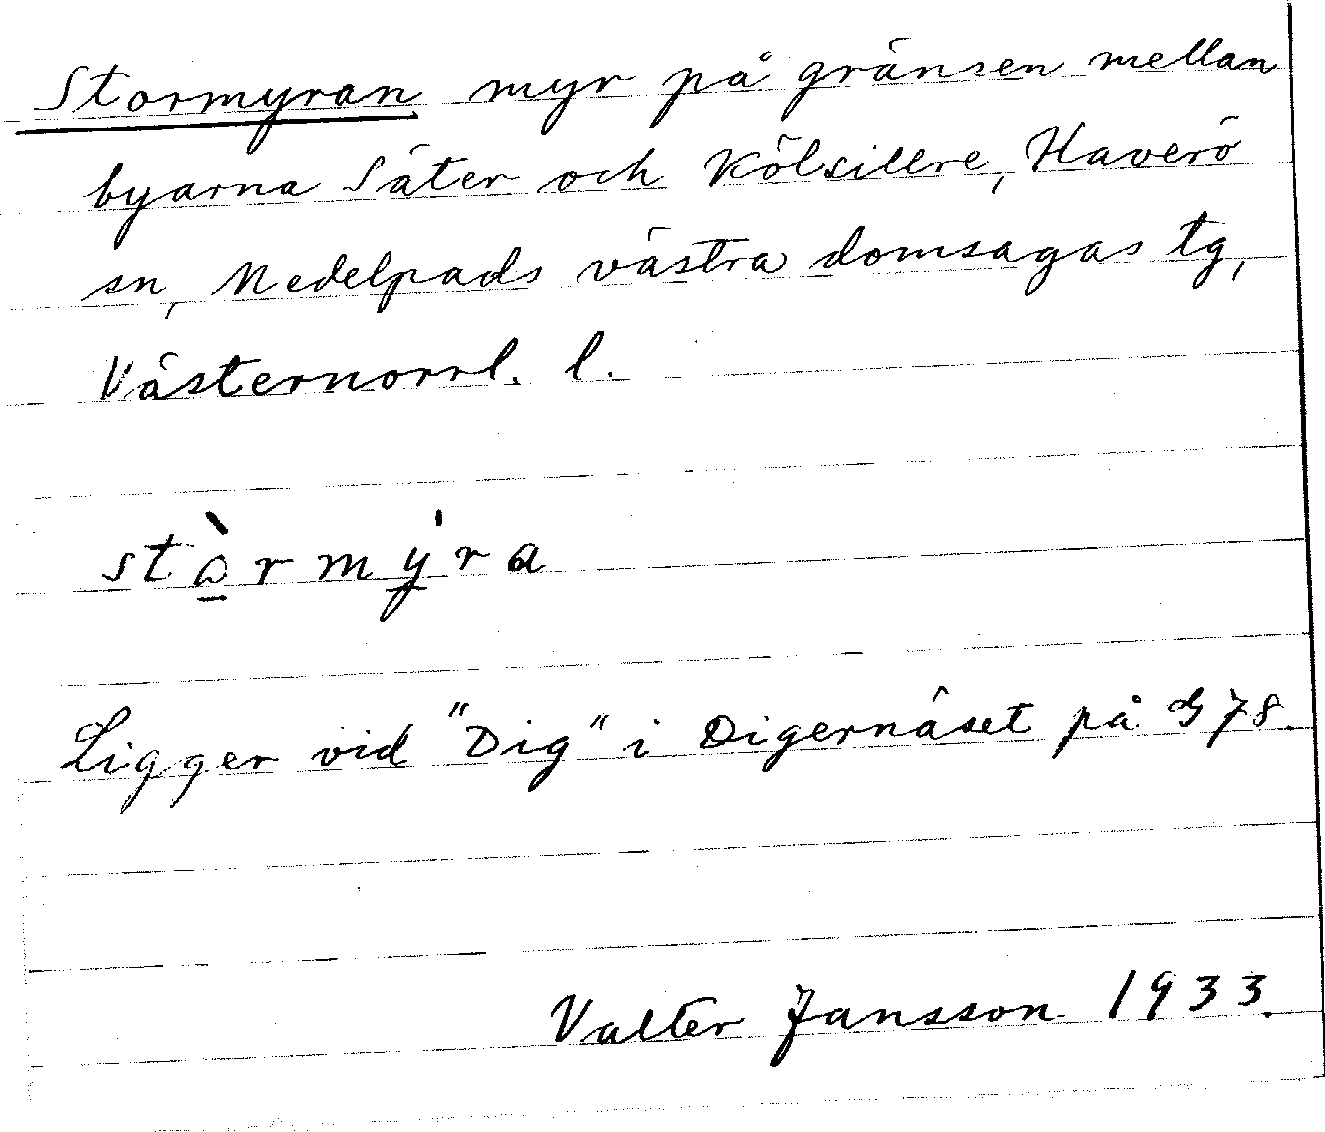 Stormyran myr på gränsen mellan
byarna Säter och Kölsillre, Haverö
sn, Medelpads västra domsagas tg,
Västernorrl. l.
stò̱rmý̱ra
Ligger vid "Dig" i Digernäset på G 78.
Valter Jansson 1933.